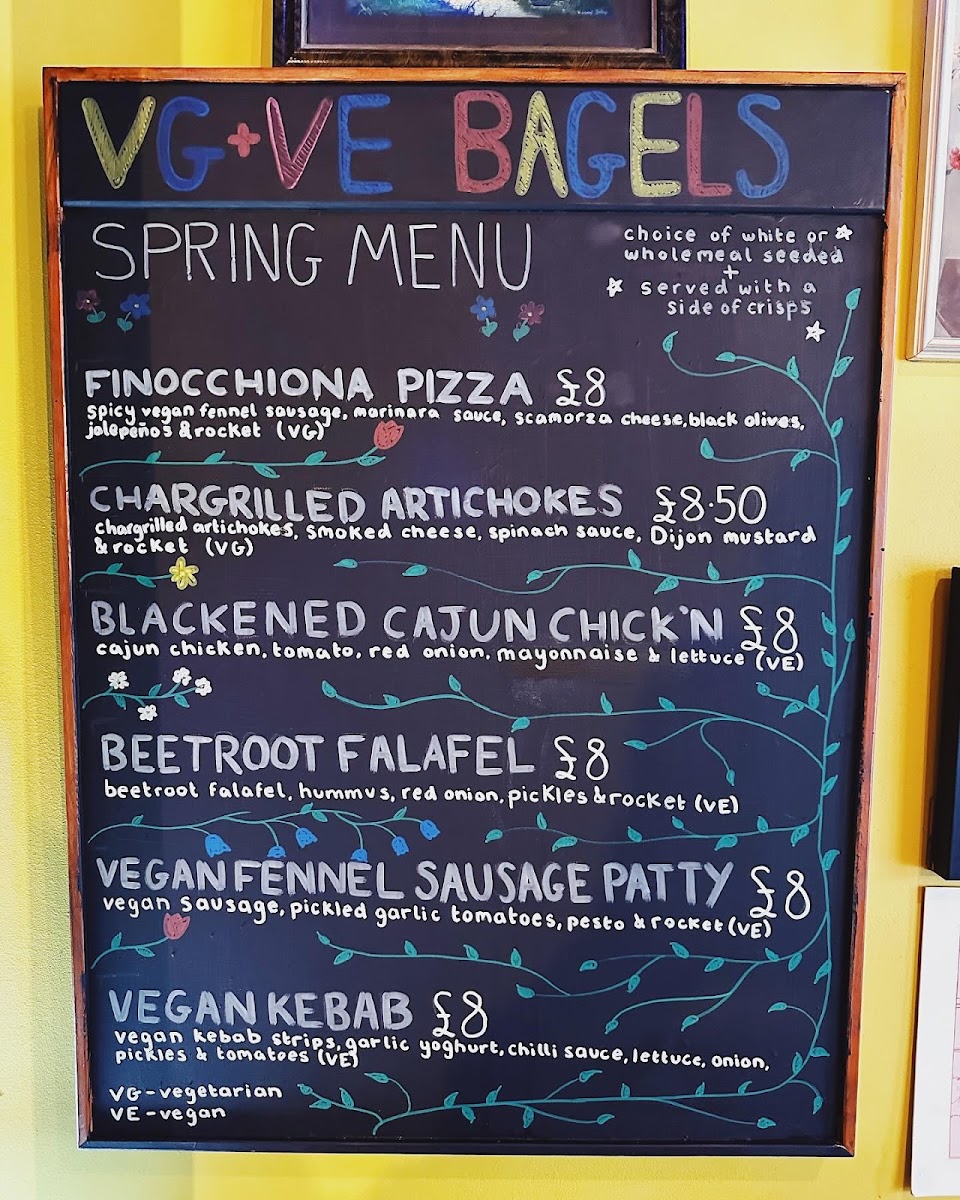 VG+VE BAGELS
SPRING MENU
choice of white or
wholemeal seeded
+
served with a
side of crisps
FINOCCHIONA PIZZA £8
spicy vegan fennel sausage, marinara sauce, scamorza cheese, black olives,
jalepeños & rocket (VG)
CHARGRILLED ARTICHOKES £8.50
chargrilled artichokes, smoked cheese, spinach sauce, Dijon mustard
& rocket (VG)
BLACKENED CAJUN CHICK'N £8
cajun chicken, tomato, red onion, mayonnaise & lettuce (VE)
BEETROOT FALAFEL £8
beetroot falafel, hummus, red onion, pickles & rocket (VE)
VEGAN FENNEL SAUSAGE PATTY £8
vegan sausage, pickled garlic tomatoes, pesto & rocket (VE)
VEGAN KEBAB £8
vegan kebab strips, garlic yoghurt, chilli sauce, lettuce, onion,
pickles & tomatoes (VE)
VG-vegetarian
VE-vegan